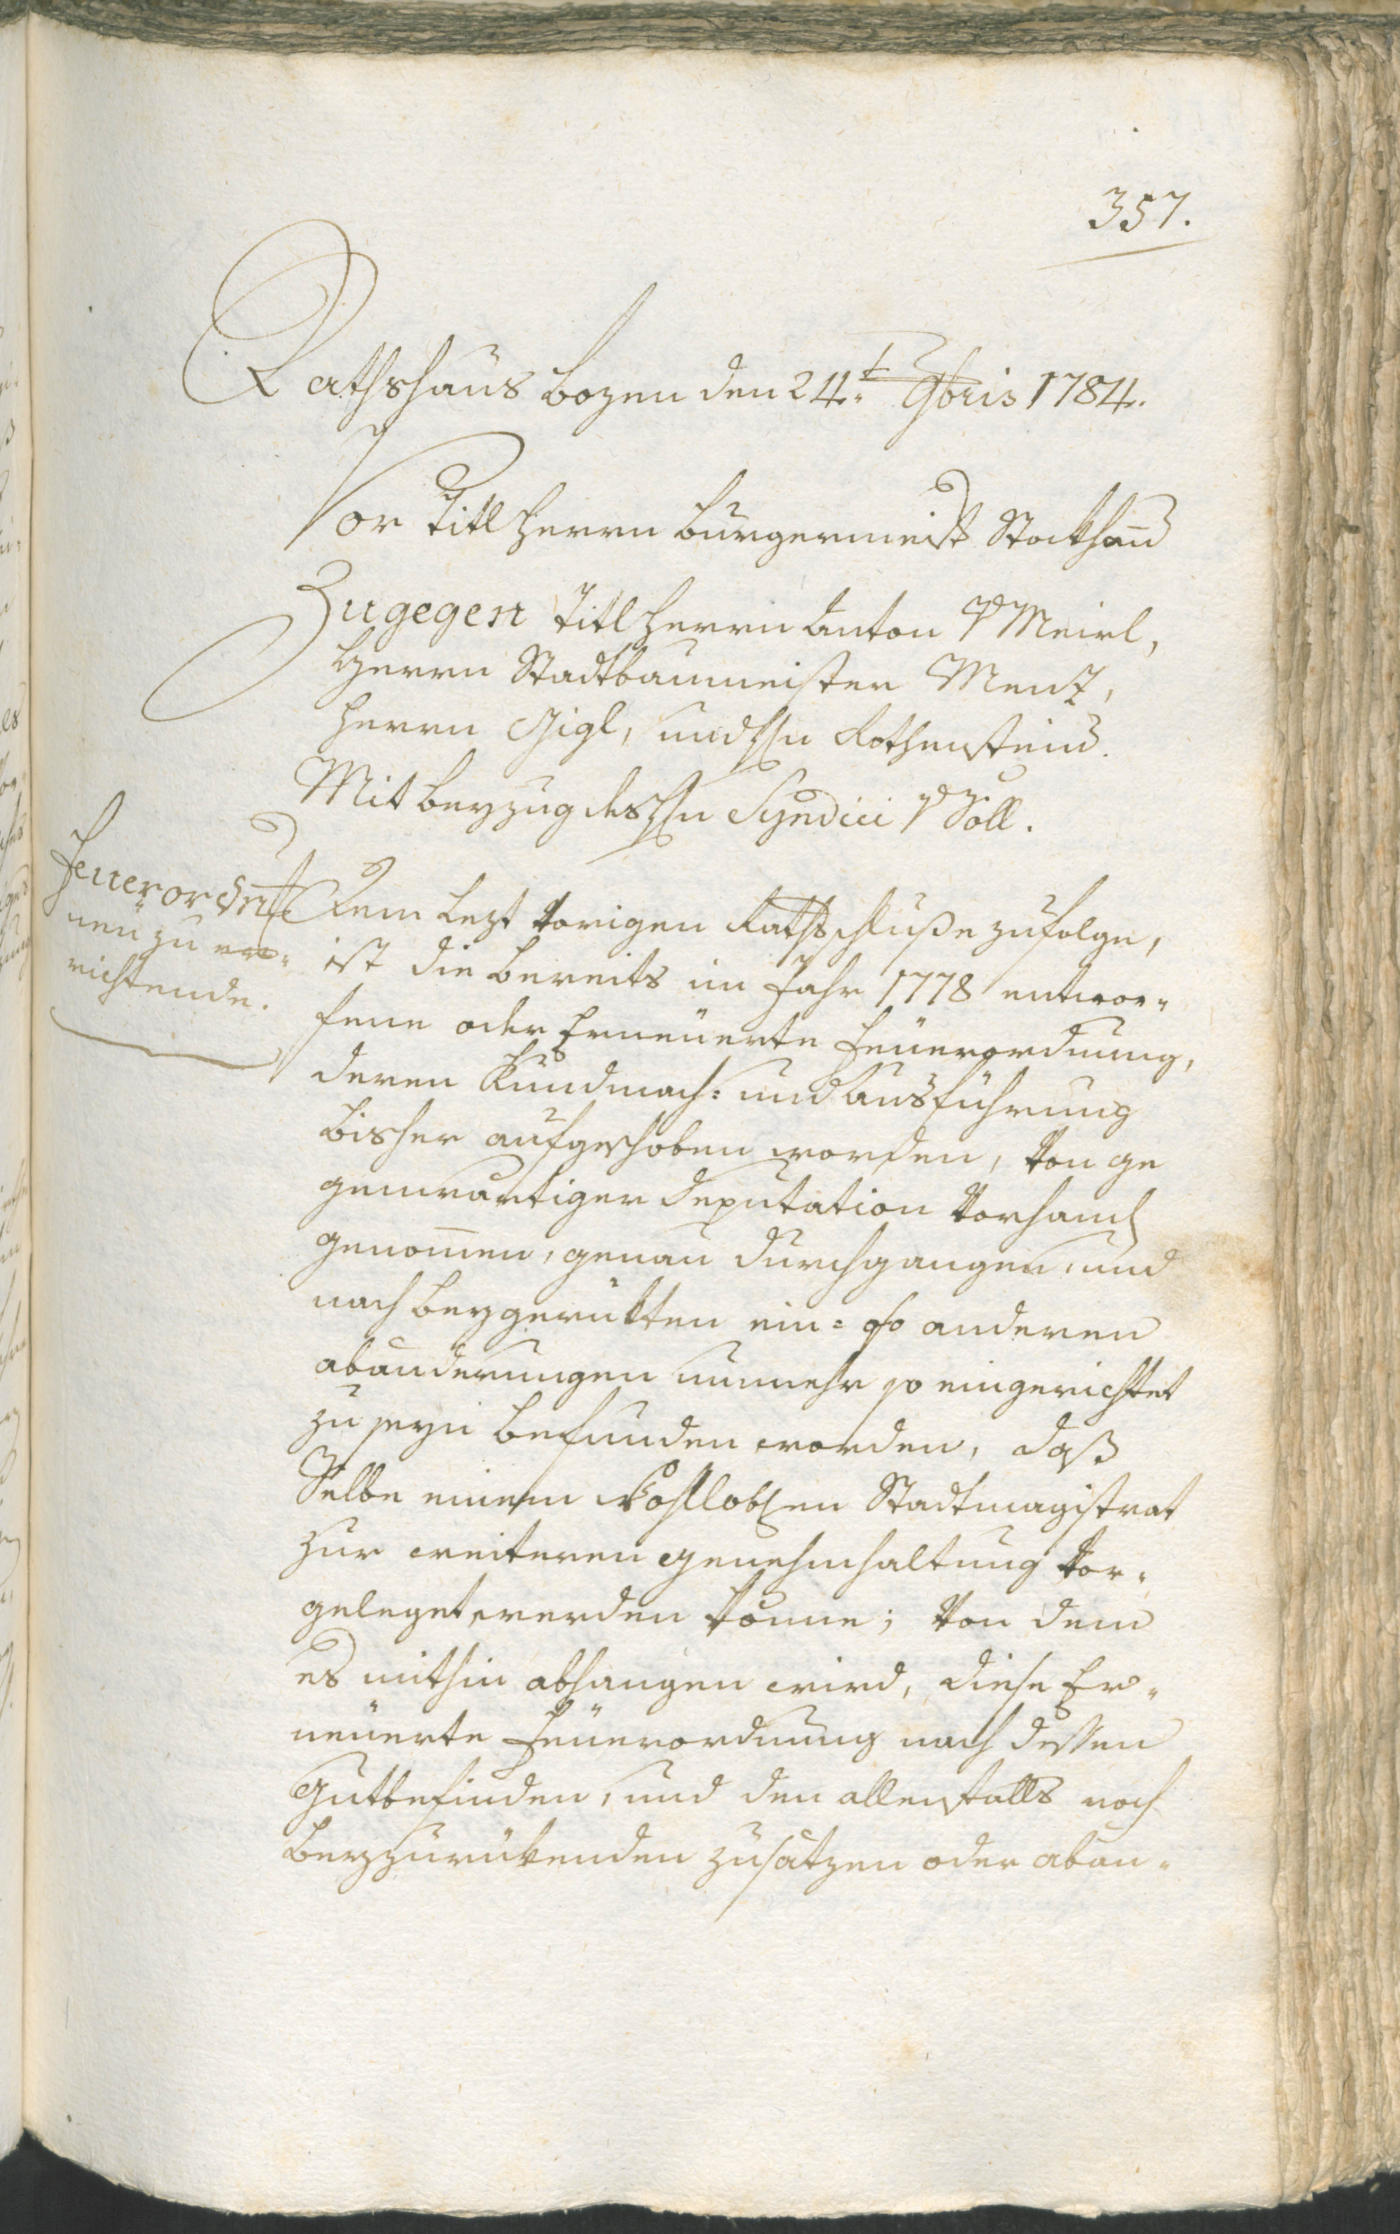 357.
Rathshaus Bozen den 24.t 9bris 1784.
Vor Titl Herrn Burgermeist Stokham̄
Zugegen Titl Herrn Anton v Meirl,
Herrn Stadtbaumeister Menz,
Herrn Gigl, und Hn Rothenstein.
Mit beyzug des Hn Syndici v Söll.
Feuerordn̄
neü zu er=
richtende.
Dem Lezt Vorigen Rathsschluße zufolge,
ist die bereits im Jahr 1778 entwor=
fene oder Erneüerte Feüerordnung,
deren Kundmach= und Ausführung
bisher aufgeschoben worden, Von ge
genwärtiger Deputation Vorhand
genom̄en, genau durchgangen, und
nach beygerükten ein= so anderen
abänderungen nunmehr so eingerichtet
zu seyn befunden worden, daß
Selbe einem Wohlloblen Stadtmagistrat
zur weiteren genehmhaltung Vor=
geleget werden könne; Von dem
es mithin abhangen wird, diese Er=
neüerte Feüerordnung nach dessen
Gutbefinden, und den allenfalls noch
beyzurükenden zusätzen oder abän=